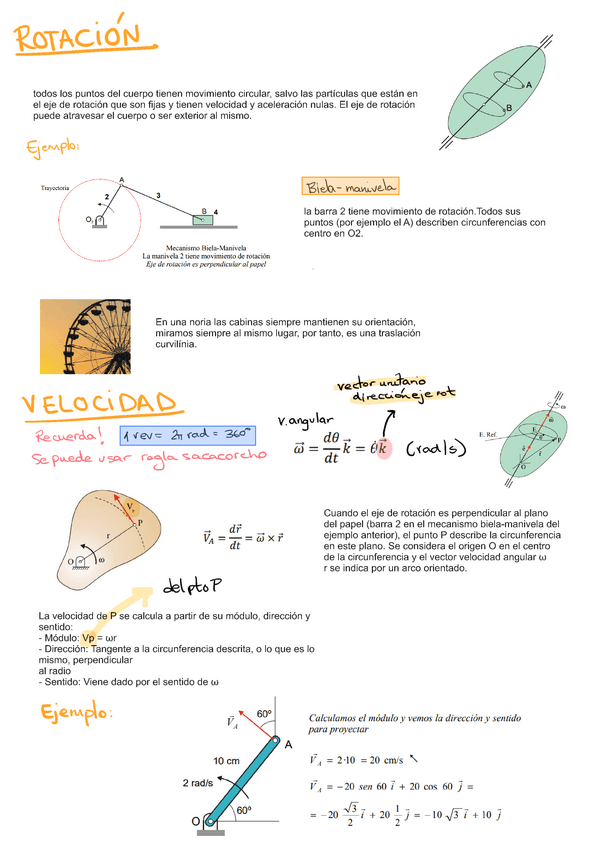 ROTACIÓN
todos los puntos del cuerpo tienen movimiento circular, salvo las partículas que están en
el eje de rotación que son fijas y tienen velocidad y aceleración nulas. El eje de rotación
puede atravesar el cuerpo o ser exterior al mismo.
A
B
Ejemplo:
Trayectoria
A
2
3
B 4
O₂
Mecanismo Biela-Manivela
La manivela 2 tiene movimiento de rotación
Eje de rotación es perpendicular al papel
Biela-manivela
la barra 2 tiene movimiento de rotación.Todos sus
puntos (por ejemplo el A) describen circunferencias con
centro en O2.
En una noria las cabinas siempre mantienen su orientación,
miramos siempre al mismo lugar, por tanto, es una traslación
curvilínia.
VELOCIDAD
Recuerda! 1 rev = 2π rad = 360°
Se puede usar regla sacacorcho
vector unitario
dirección eje rot
v. angular
ω⃗ = dθ/dt k⃗ = θ̇k⃗ (rad/s)
E. Ref.
ω
P
r
O
V_P
P
r
O
ω
V⃗_A = dr⃗/dt = ω⃗ × r⃗
del pto P
Cuando el eje de rotación es perpendicular al plano
del papel (barra 2 en el mecanismo biela-manivela del
ejemplo anterior), el punto P describe la circunferencia
en este plano. Se considera el origen O en el centro
de la circunferencia y el vector velocidad angular ω
r se indica por un arco orientado.
La velocidad de P se calcula a partir de su módulo, dirección y
sentido:
- Módulo: Vp = ωr
- Dirección: Tangente a la circunferencia descrita, o lo que es lo
mismo, perpendicular
al radio
- Sentido: Viene dado por el sentido de ω
Ejemplo:
V⃗_A
60º
A
10 cm
2 rad/s
60º
O
Calculamos el módulo y vemos la dirección y sentido
para proyectar
V⃗_A = 2·10 = 20 cm/s ↖
V⃗_A = −20 sen 60 i⃗ + 20 cos 60 j⃗ =
= −20 √3/2 i⃗ + 20 1/2 j⃗ = −10 √3 i⃗ + 10 j⃗